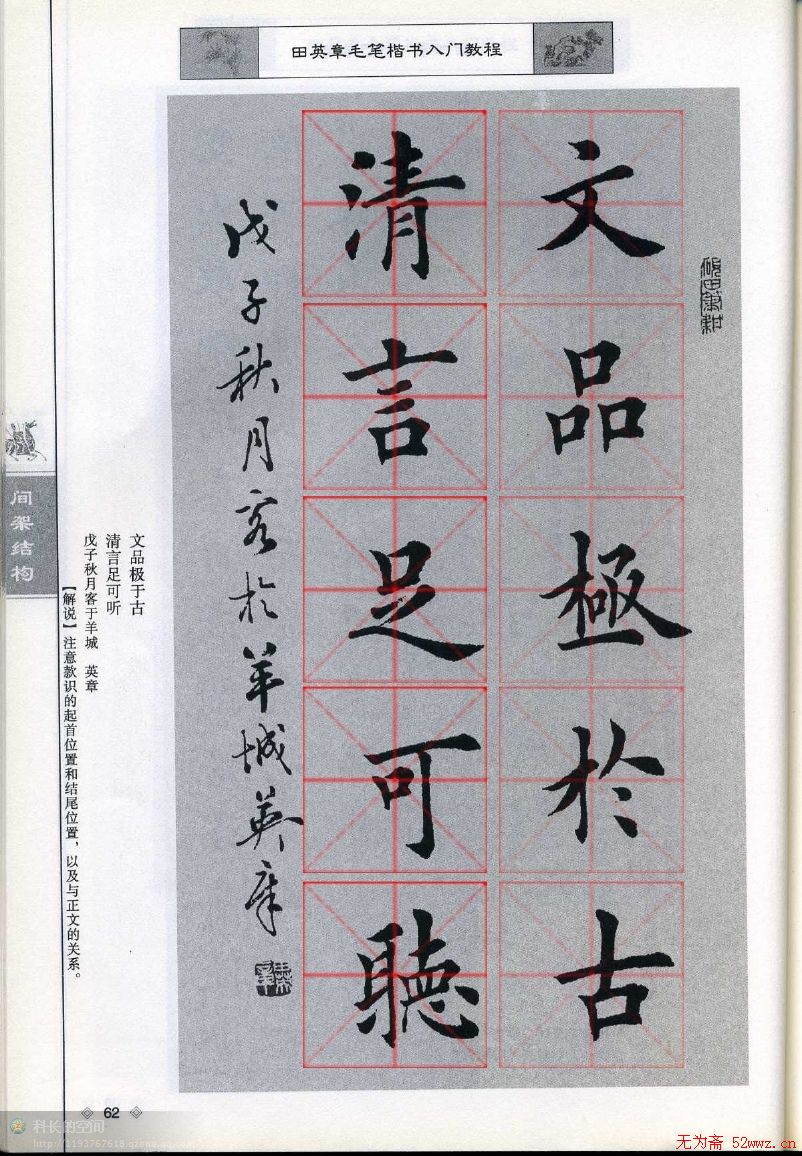 田英章毛笔楷书入门教程
文品極於古
清言足可聽
戊子秋月客於羊城英章
间架结构
文品极于古
清言足可听
戊子秋月客于羊城 英章
【解说】注意款识的起首位置和结尾位置，以及与正文的关系。
62
科长的空间
http://1193767618.qzone.qq.com
无为斋 52wwz.cn